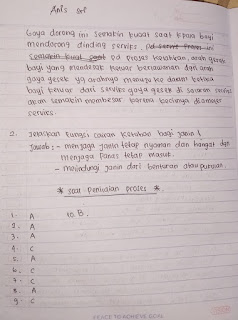 Gaya dorong ini semakin kuat saat kpala bayi
mendorong dinding serviks.
semakin kuat saat pd proses kelahiran, arah gerak
bayi yang mendesak keluar berlawanan dari arah
gaya gesek yg arahnya menuju ke dalam ketika
bayi keluar dari serviks gaya gesek di saluran serviks
akan semakin membesar karena kecilnya diameter
serviks.
2. Jelaskan fungsi cairan ketuban bagi janin!
Jawab: - menjaga janin tetap nyaman dan hangat dgn
menjaga panas tetap masuk.
- melindungi janin dari benturan atau
* saat penilaian proses *
1. A 10. B.
2. A
3. A
4. C
5. A
6. C
7. C
8. A
9. C